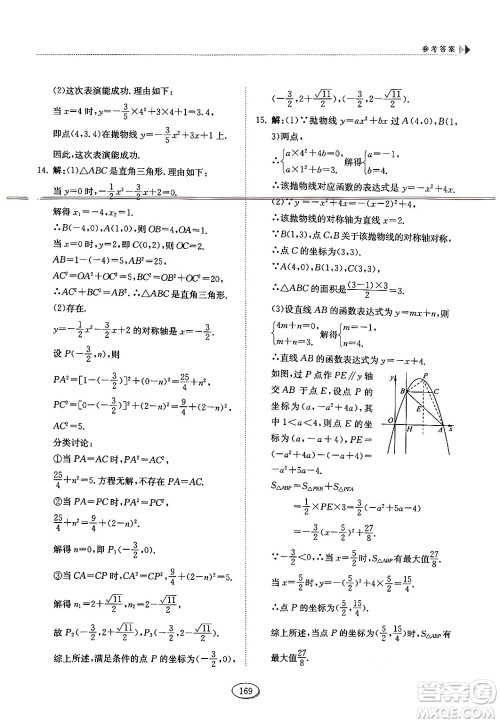 参考答案
(2)这次表演能成功. 理由如下:
当 x=4 时, y=-3/5×4²+3×4+1=3.4,
即点(4,3.4)在抛物线 y=-3/5x²+3x+1 上.
因此,这次表演能成功.
14. 解:(1)△ABC 是直角三角形. 理由如下:
当 y=0 时, -1/2x²-3/2x+2=0,
解得 x₁=-4, x₂=1.
∴B(-4,0),A(1,0),OB=4,OA=1.
当 x=0 时,y=2,∴C(0,2),OC=2.
AB=1-(-4)=5,
AC²=OA²+OC²=5,BC²=OC²+OB²=20.
∴AC²+BC²=AB².∴△ABC 是直角三角形.
(2)存在.
y=-1/2x²-3/2x+2 的对称轴是 x=-3/2,
设 P(-3/2,n),则
PA²=[1-(-3/2)]²+n²=25/4+n²,
PC²=[0-(-3/2)]²+(2-n)²=9/4+(2-n)²,
AC²=5.
分类讨论:
①当 PA=AC 时,PA²=AC²,
25/4+n²=5. 方程无解,不存在.
②当 PA=CP 时,PA²=CP²,
25/4+n²=9/4+(2-n)².
解得 n=0,即 P₁(-3/2,0).
③当 CA=CP 时,CA²=CP²,
5=9/4+(2-n)².
解得 n₁=2+√11/2,n₂=2-√11/2,
故 P₂(-3/2,2+√11/2),P₃(-3/2,2-√11/2).
综上所述,满足条件的点 P 的坐标为(-3/2,0)或
(-3/2,2+√11/2)或(-3/2,2-√11/2).
15. 解:(1)∵抛物线 y=ax²+bx 过 A(4,0),B(1,
3)两点,
∴{a×4²+b×4=0, a×1²+b×1=3. 解得{a=-1, b=4.
∴该抛物线对应函数的表达式是 y=-x²+4x.
(2)∵y=-x²+4x=-(x-2)²+4,
∴该抛物线的对称轴为直线 x=2.
∵点 C,B 关于该抛物线的对称轴对称,
B(1,3),∴点 C 的坐标为(3,3).
∴BC=3-1.
∴△ABC 的面积是 (3-1)×3/2=3.
(3)设直线 AB 的函数表达式为 y=mx+n,则
{4m+n=0, m+n=3. 解得{m=-1, n=4.
∴直线 AB 的函数表达式为 y=-x+4.
如图,过点 P 作 PE∥y 轴
交 AB 于点 E,设点 P 的
坐标为(a,-a²+4a)
(1<a<4),则点 E 的坐标
为(a,-a+4).
∴PE=-a²+5a-4.
S△ABP=S△PEB+S△PEA
=1/2×PE×3=3/2(-a²+5a-4)
=-3/2(a-5/2)²+27/8.
∵-3/2<0,∴当 a=5/2 时,S△ABP有最大值27/8.
当 x=5/2 时,-x²+4x=15/4,
∴点 P 的坐标为(5/2,15/4).
综上所述,当点 P 的坐标为(5/2,15/4)时,S△ABP有
最大值27/8.
y
P
B
E
O
A
x
169